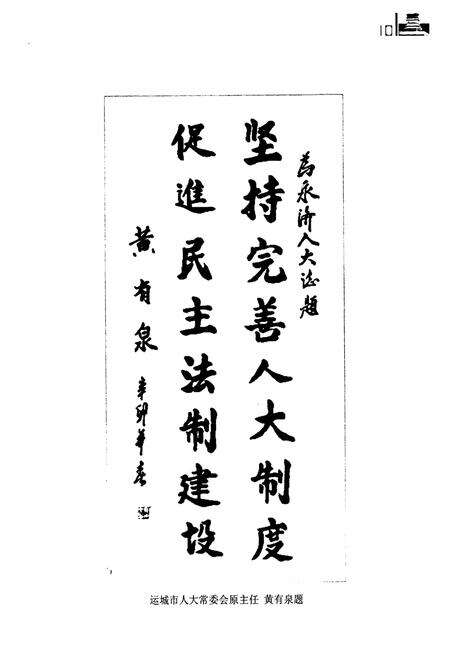 10
为永济人大志题
坚持完善人大制度
促進民主法制建设
黄有泉
辛卯年春
运城市人大常委会原主任 黄有泉题